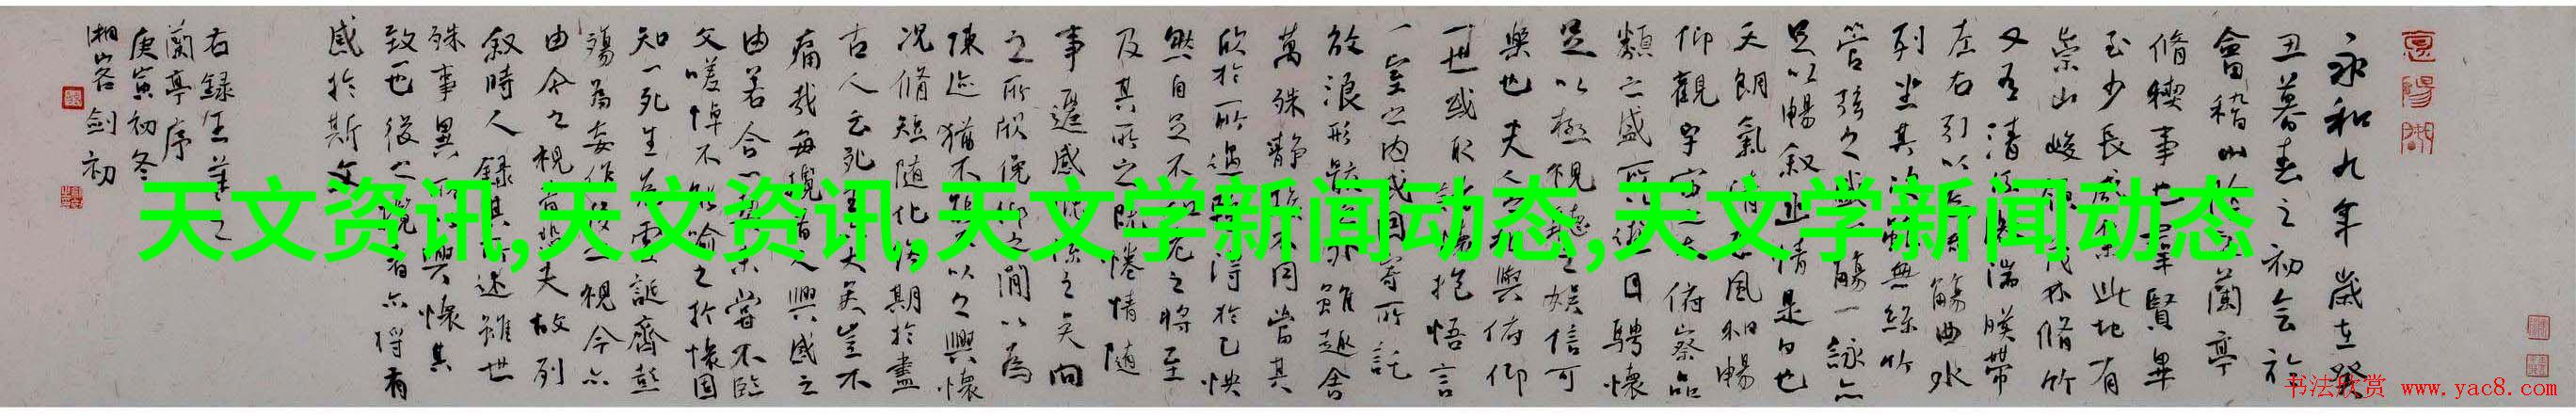 天文资讯,天文资讯,天文学新闻动态,天文学新闻动态
永和九年歲在癸
丑暮春之初会於
會稽山陰之蘭亭
脩稧事也群賢畢
至少長咸集此地有
崇山峻領茂林脩竹
又有清流激湍暎帶
左右引以為流觴曲水
列坐其次雖無絲竹
管弦之盛一觴一詠亦
足以暢叙幽情是日也
天朗氣清惠風和暢
仰觀宇宙之大俯察品
類之盛所以遊目騁懷
足以極視聽之娛信可
樂也夫人之相與俯仰
一世或取諸懷抱悟言
一室之内或因寄所託
放浪形骸之外雖趣舍
萬殊静躁不同當其
欣於所遇暫得於己快
然自足不知老之將至
及其所之既惓情随
事遷感慨係之矣向
之所欣俛仰之間以為
陳迹猶不能不以之興懷
况脩短随化終期於盡
古人云死生亦大矣豈不
痛哉每攬昔人興感之
由若合一契未嘗不臨
文嗟悼不能喻之於懷固
知一死生為虛誕齊彭
殤為妄作後之視今亦
由今之視昔悲夫故列
叙時人錄其所述雖世
殊事異所以興懷其
致也後之覽者亦将有
感於斯文
右録王羲之
蘭亭序
庚寅初冬
湘客剑初
书法欣赏 www.yac8.com